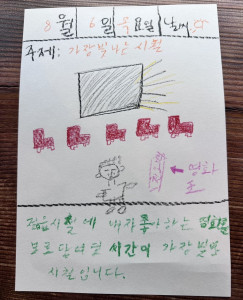 8월 6일 목요일 날씨
주제: 가장 빛나는 시절
영화
젊음시절에 내가 좋아하는
모로 담여던 시간이 가장 빛만
시절입니다.